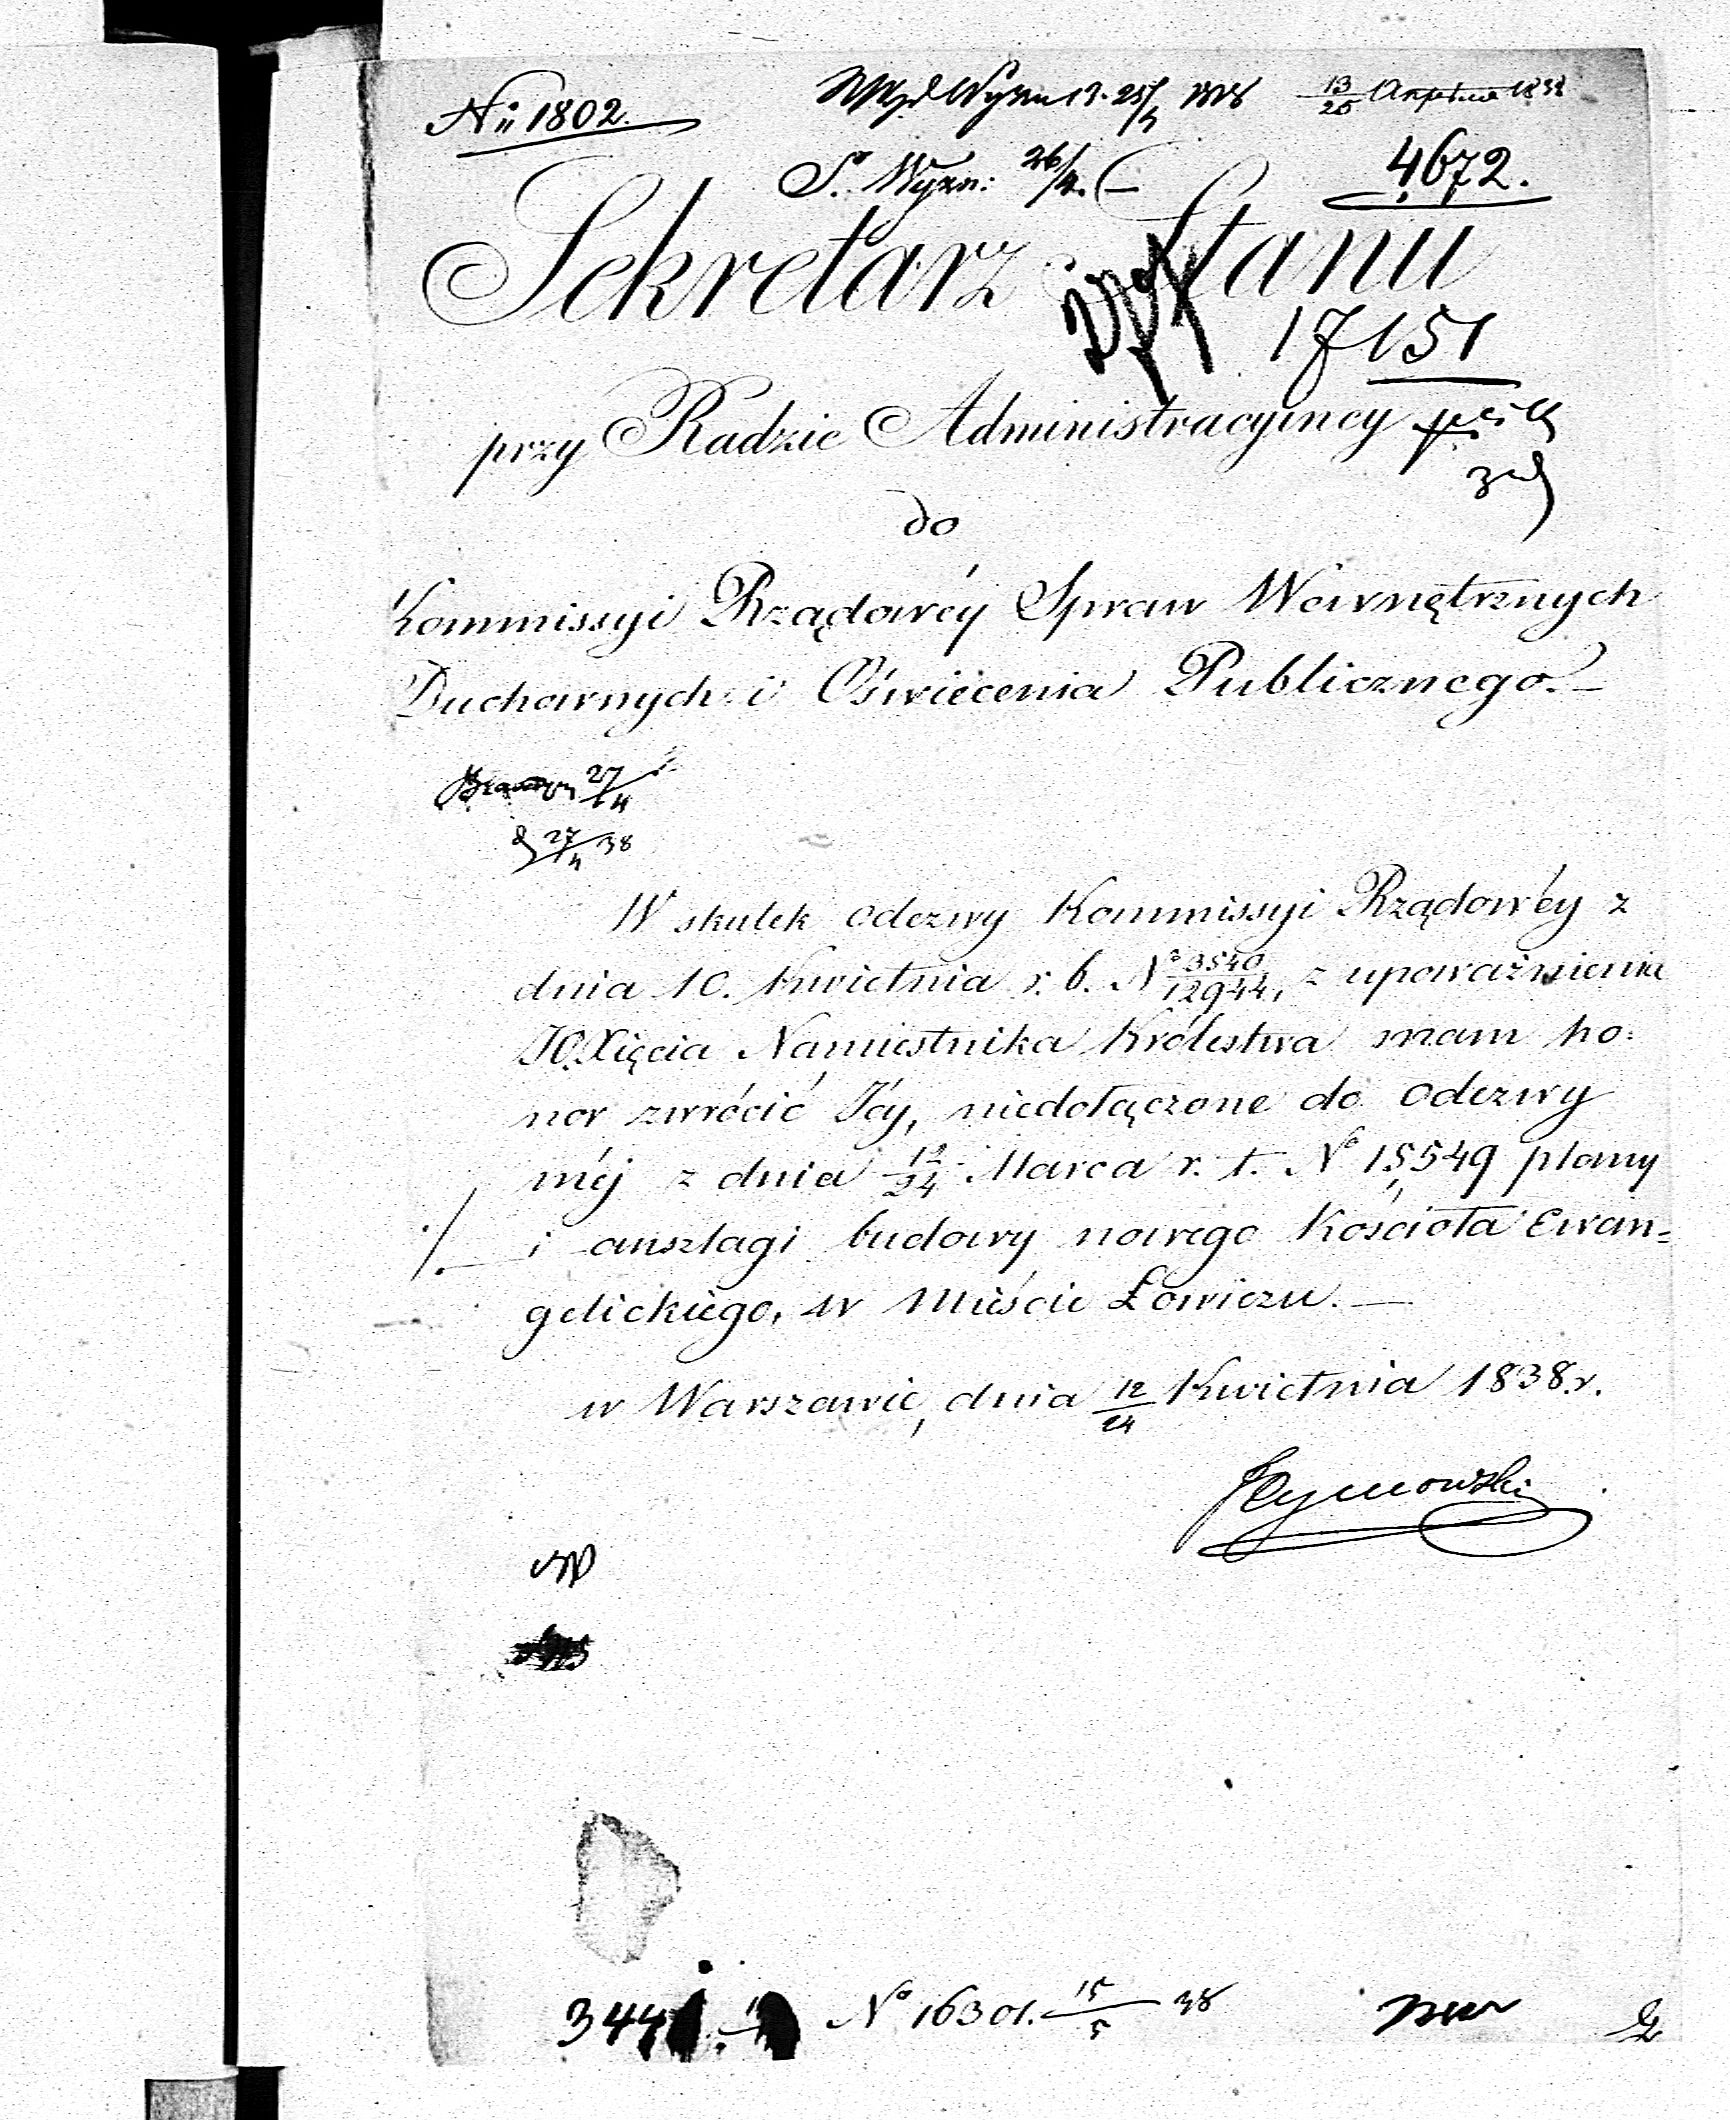 № 1802.
13/25 Апрѣля 1838
S. Wyzn: 26/4. —
4672.
Sekretarz Stanu
17151
przy Radzie Administracyiney
do
Kommissyi Rządowéy Spraw Wewnętrznych
Duchownych i Oświecenia Publicznego. —
27/4
27/4 38
W skutek odezwy Kommissyi Rządowéy z
dnia 10. Kwietnia r. b. № 3540/12944, z upoważnienia
JO. Xięcia Namiestnika Królestwa mam ho:
nor zwrócić Jéy, niedołączone do odezwy
méj z dnia 12/24 Marca r. t. № 15,549 plany
i anszlagi budowy nowego Kościoła Ewan=
gelickiego, w Mieście Łowiczu. —
w Warszawie, dnia 12/24 Kwietnia 1838. r.
Tymowski
№ 16301. 15/5 38